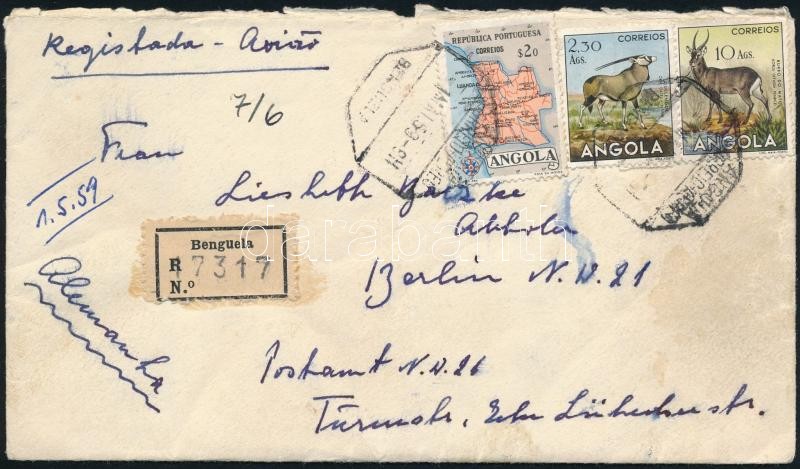 Registada - Avião
7/6
REPÚBLICA PORTUGUESA
CORREIOS
$20
ANGOLA
2.30
Ags.
CORREIOS
ANGOLA
10 Ags.
CORREIOS
ANGOLA
Frau
Liesbeth
1.5.59
Alemanha
Benguela
R
17317
N.º
Berlin N.W. 21
Postamt N.W. 21
Turmstr. Ecke Lübeckerstr.
darabanth